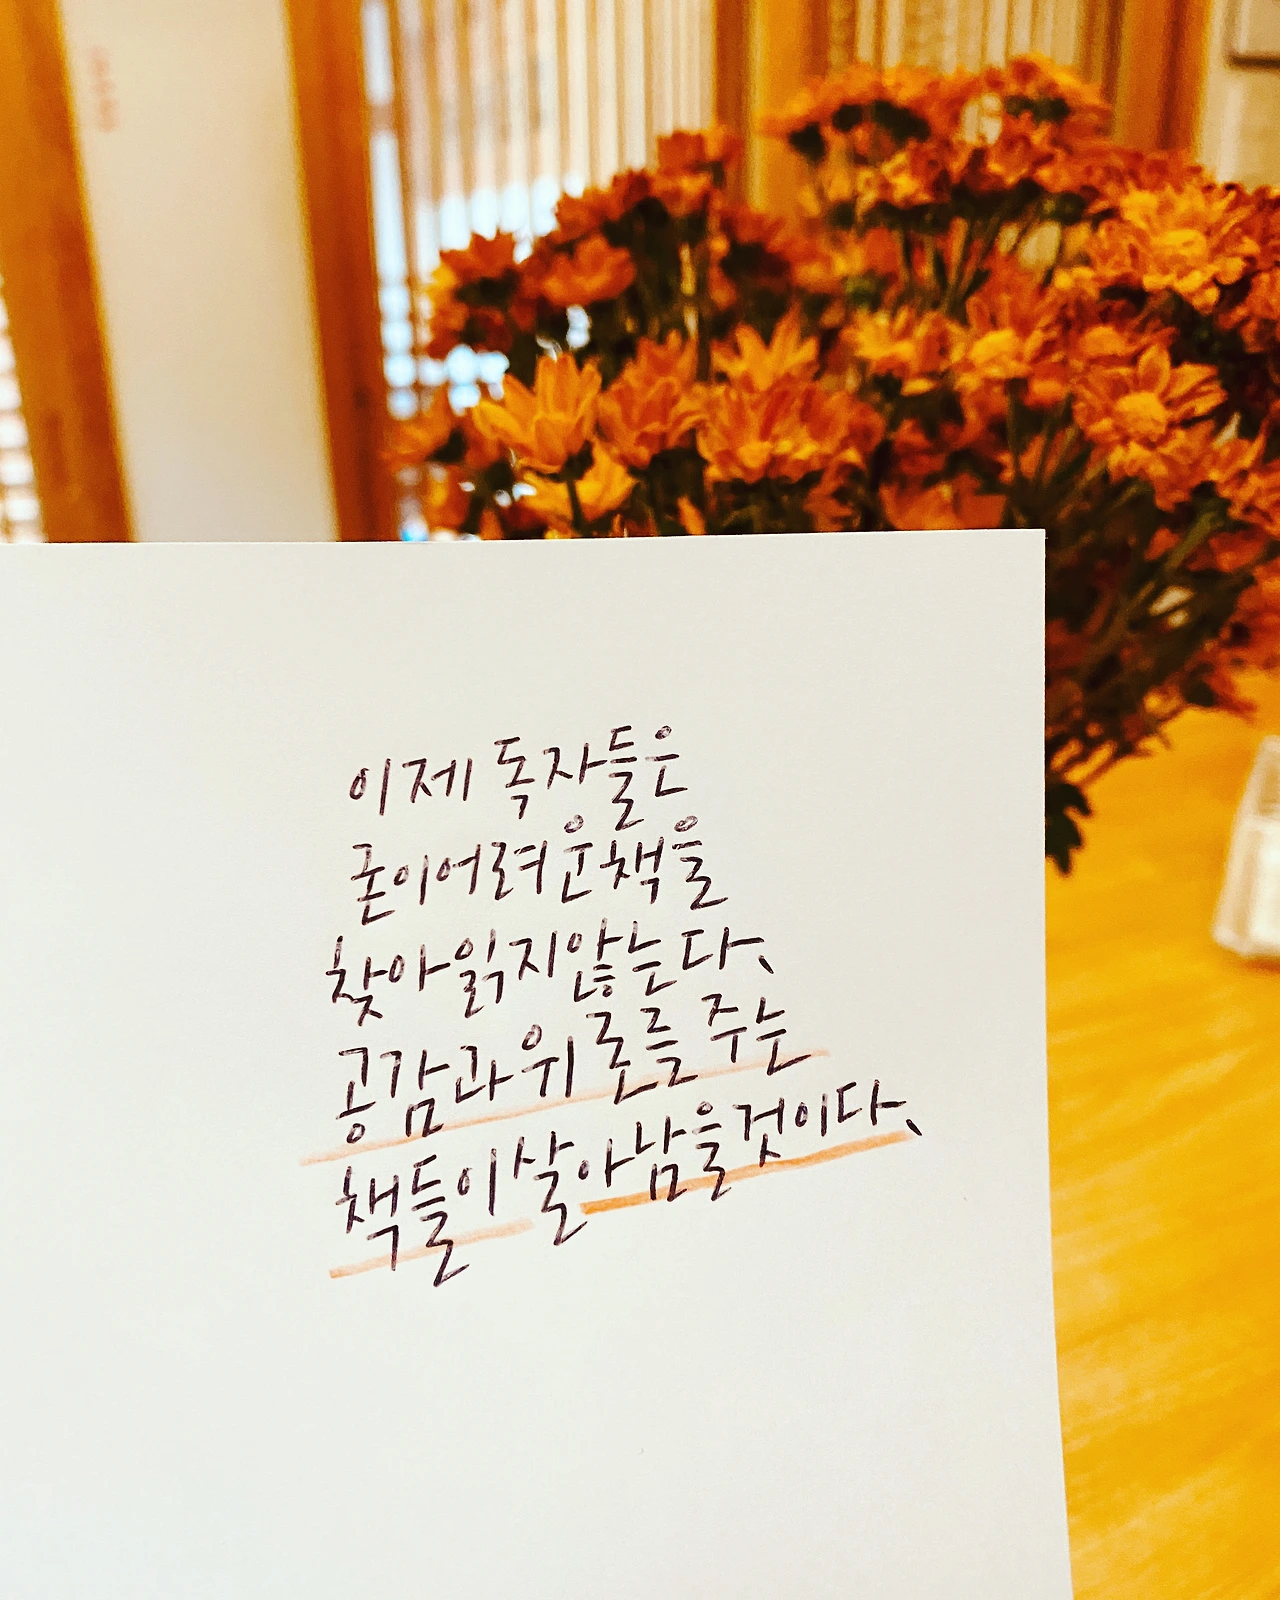 이제 독자들은
굳이 어려운 책을
찾아 읽지 않는다.
공감과 위로를 주는
책들이 살아남을 것이다.